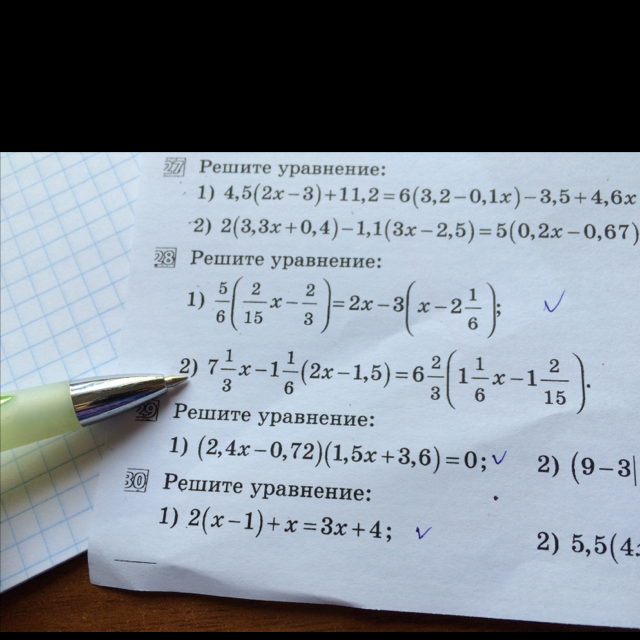 27 Решите уравнение:
1) 4,5(2x−3)+11,2=6(3,2−0,1x)−3,5+4,6x
2) 2(3,3x+0,4)−1,1(3x−2,5)=5(0,2x−0,67)
28 Решите уравнение:
1) 5/6(2/15x−2/3)=2x−3(x−2 1/6);
2) 7 1/3x−1 1/6(2x−1,5)=6 2/3(1 1/6x−1 2/15).
29 Решите уравнение:
1) (2,4x−0,72)(1,5x+3,6)=0; 2) (9−3|
30 Решите уравнение:
1) 2(x−1)+x=3x+4; 2) 5,5(4